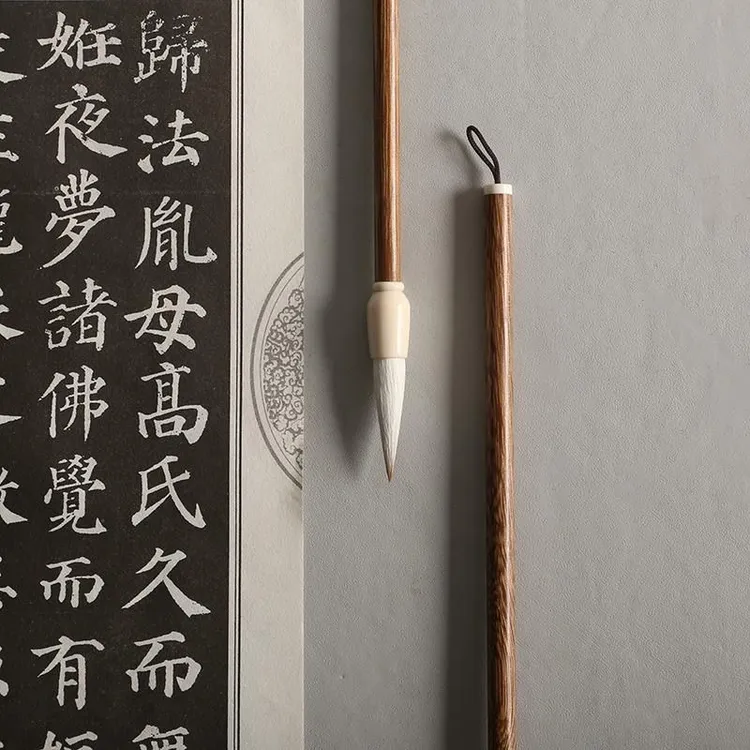 歸法胤母髙氏久而無
姙夜夢諸佛覺而有